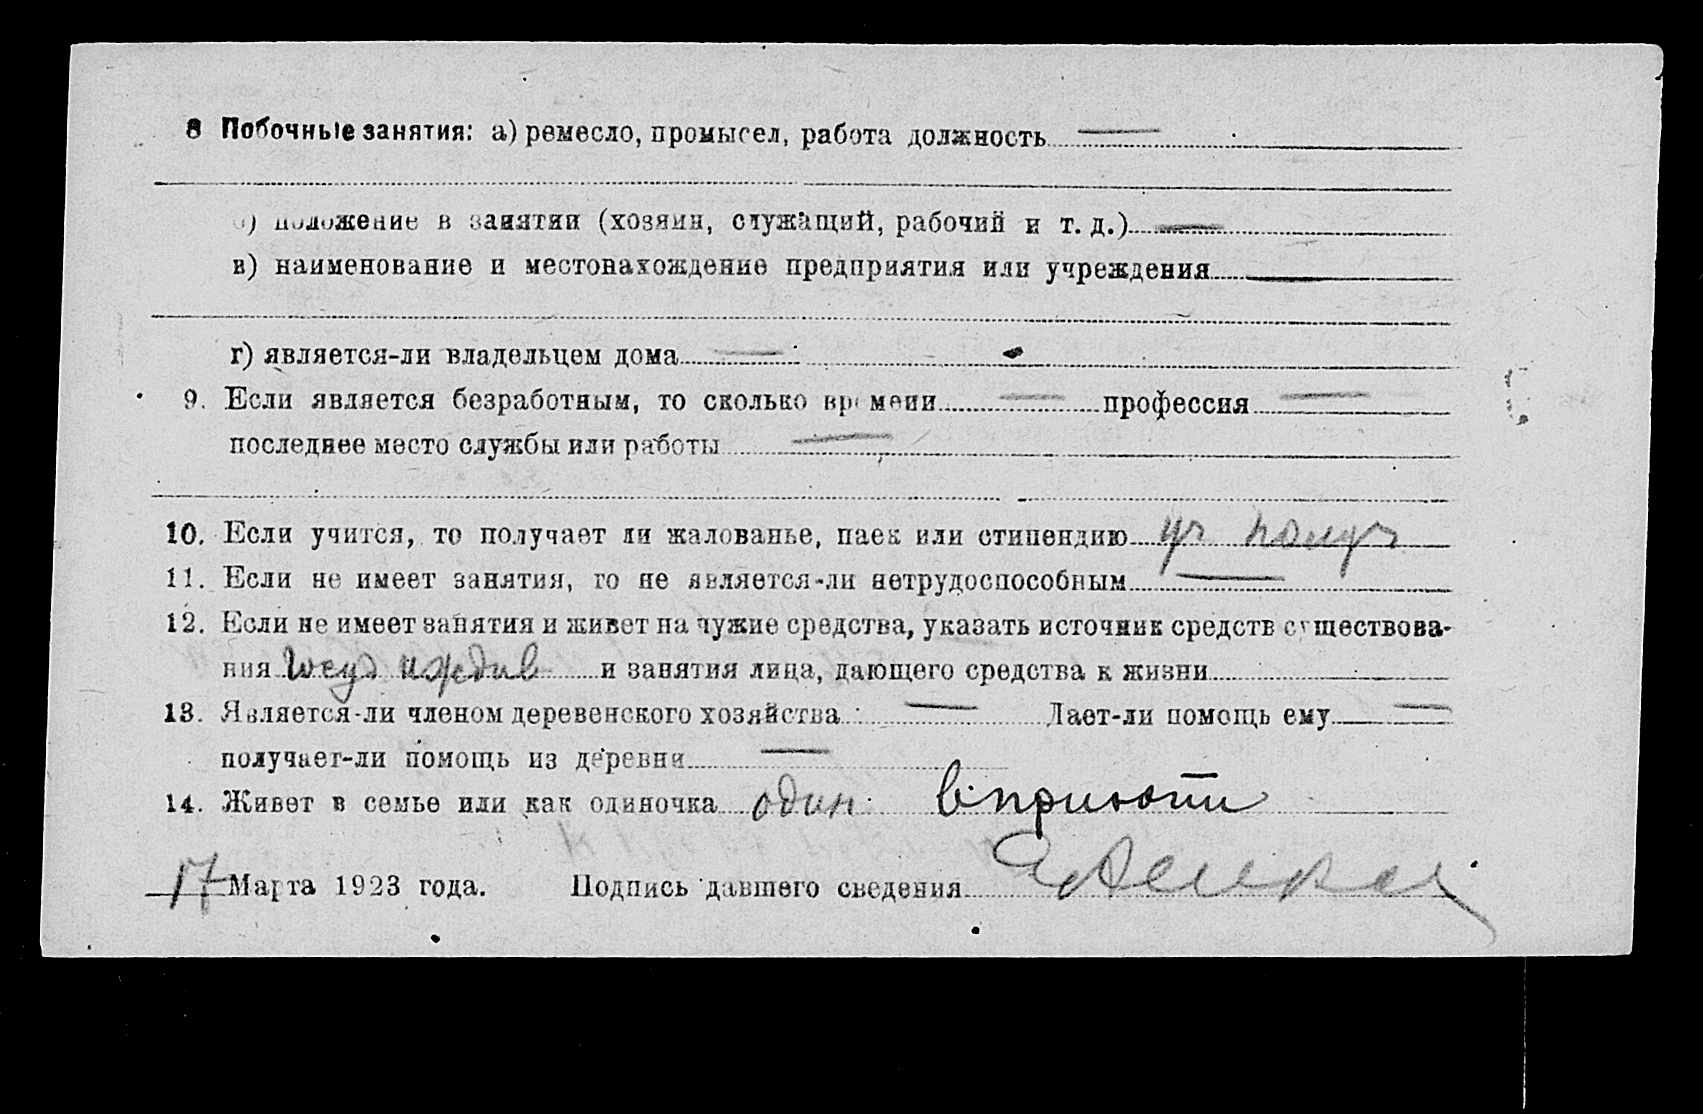 8 Побочные занятия: а) ремесло, промысел, работа должность —
б) положение в занятии (хозяин, служащий, рабочий и т. д.) —
в) наименование и местонахождение предприятия или учреждения —
г) является-ли владельцем дома —
9. Если является безработным, то сколько времени — профессия —
последнее место службы или работы —
10. Если учится, то получает ли жалованье, паек или стипендию
11. Если не имеет занятия, то не является-ли нетрудоспособным —
12. Если не имеет занятия и живет на чужие средства, указать источник средств существова-
ния иждив и занятия лица, дающего средства к жизни
13. Является-ли членом деревенского хозяйства — Дает-ли помощь ему —
получает-ли помощь из деревни —
14. Живет в семье или как одиночка один в приюти
17 Марта 1923 года. Подпись давшего сведения